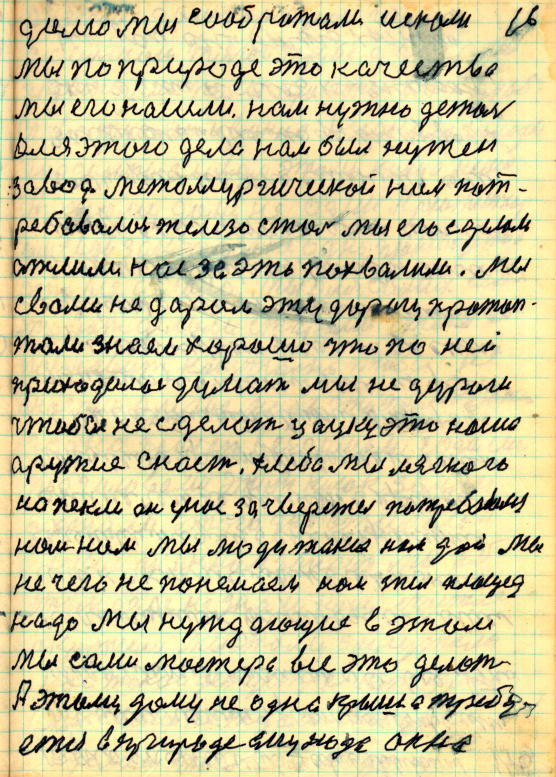 дело мы сооброжали искали 16
мы по природе это качества
мы его нашли. нам нужно детал
для этого дела нам был нужен
завод металлургический нам пот-
ребовалос железо стал мы его сделали
нас за это похвалили. мы
свами не даром эту дорогу протоп-
тали знаем хорошо что по ней
приходилос думат мы не дураки
чтобы не сделат это наше
аружие снаст. хлеба мы мягкого
напекли он у нас
нам мы люди такие нам дай мы
не чего не понемаем нам
надо мы нуждающие в этом
мы сами мастера все это делат
А этому дому не одна крыша требу-
ется в природе ему надо окна